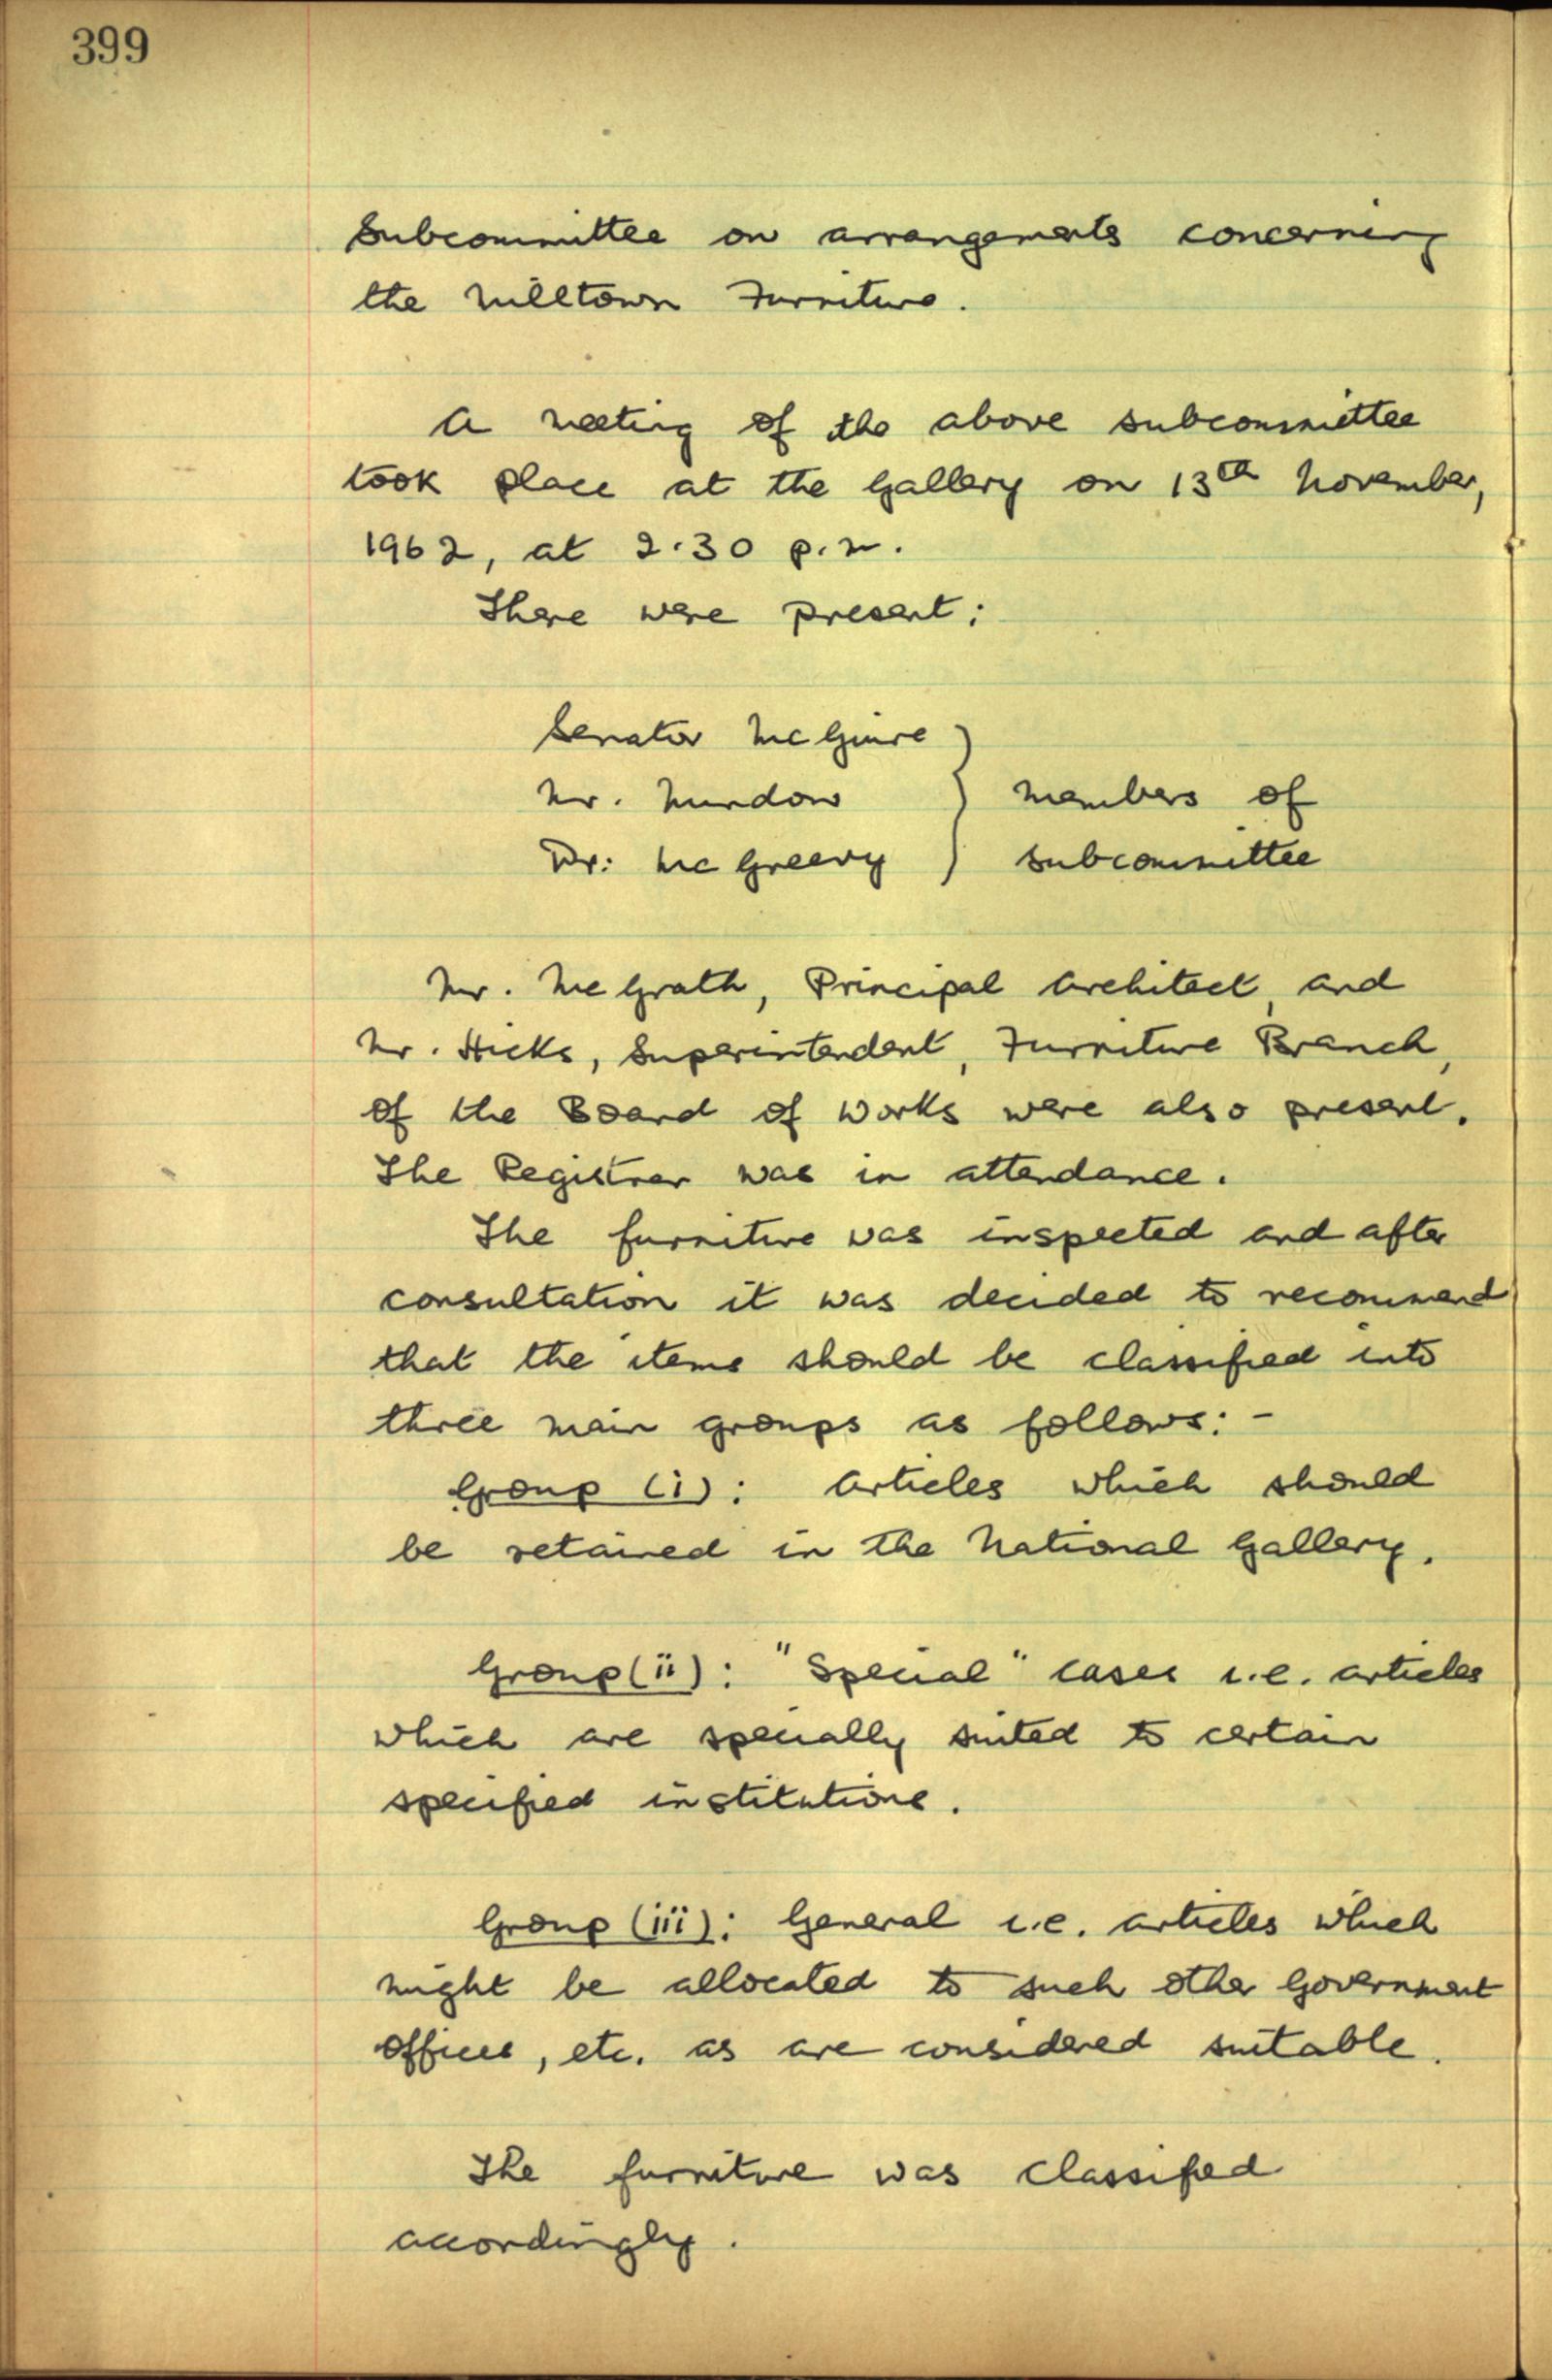 399
Subcommittee on arrangements concerning
the Milltown Furniture.
A meeting of the above subcommittee
took place at the Gallery on 13th November,
1962, at 2.30 p.m.
There were present:
Senator McGuire
Mr. Mundow } members of
Dr. McGreevy subcommittee
Mr. McGrath, Principal Architect, and
Mr. Hicks, Superintendent, Furniture Branch,
of the Board of Works were also present.
The Registrar was in attendance.
The furniture was inspected and after
consultation it was decided to recommend
that the items should be classified into
three main groups as follows:-
Group (i): Articles which should
be retained in the National Gallery.
Group (ii): "Special" cases i.e. articles
which are specially suited to certain
specified institutions.
Group (iii): General i.e. articles which
might be allocated to such other Government
offices, etc. as are considered suitable.
The furniture was classified
accordingly.